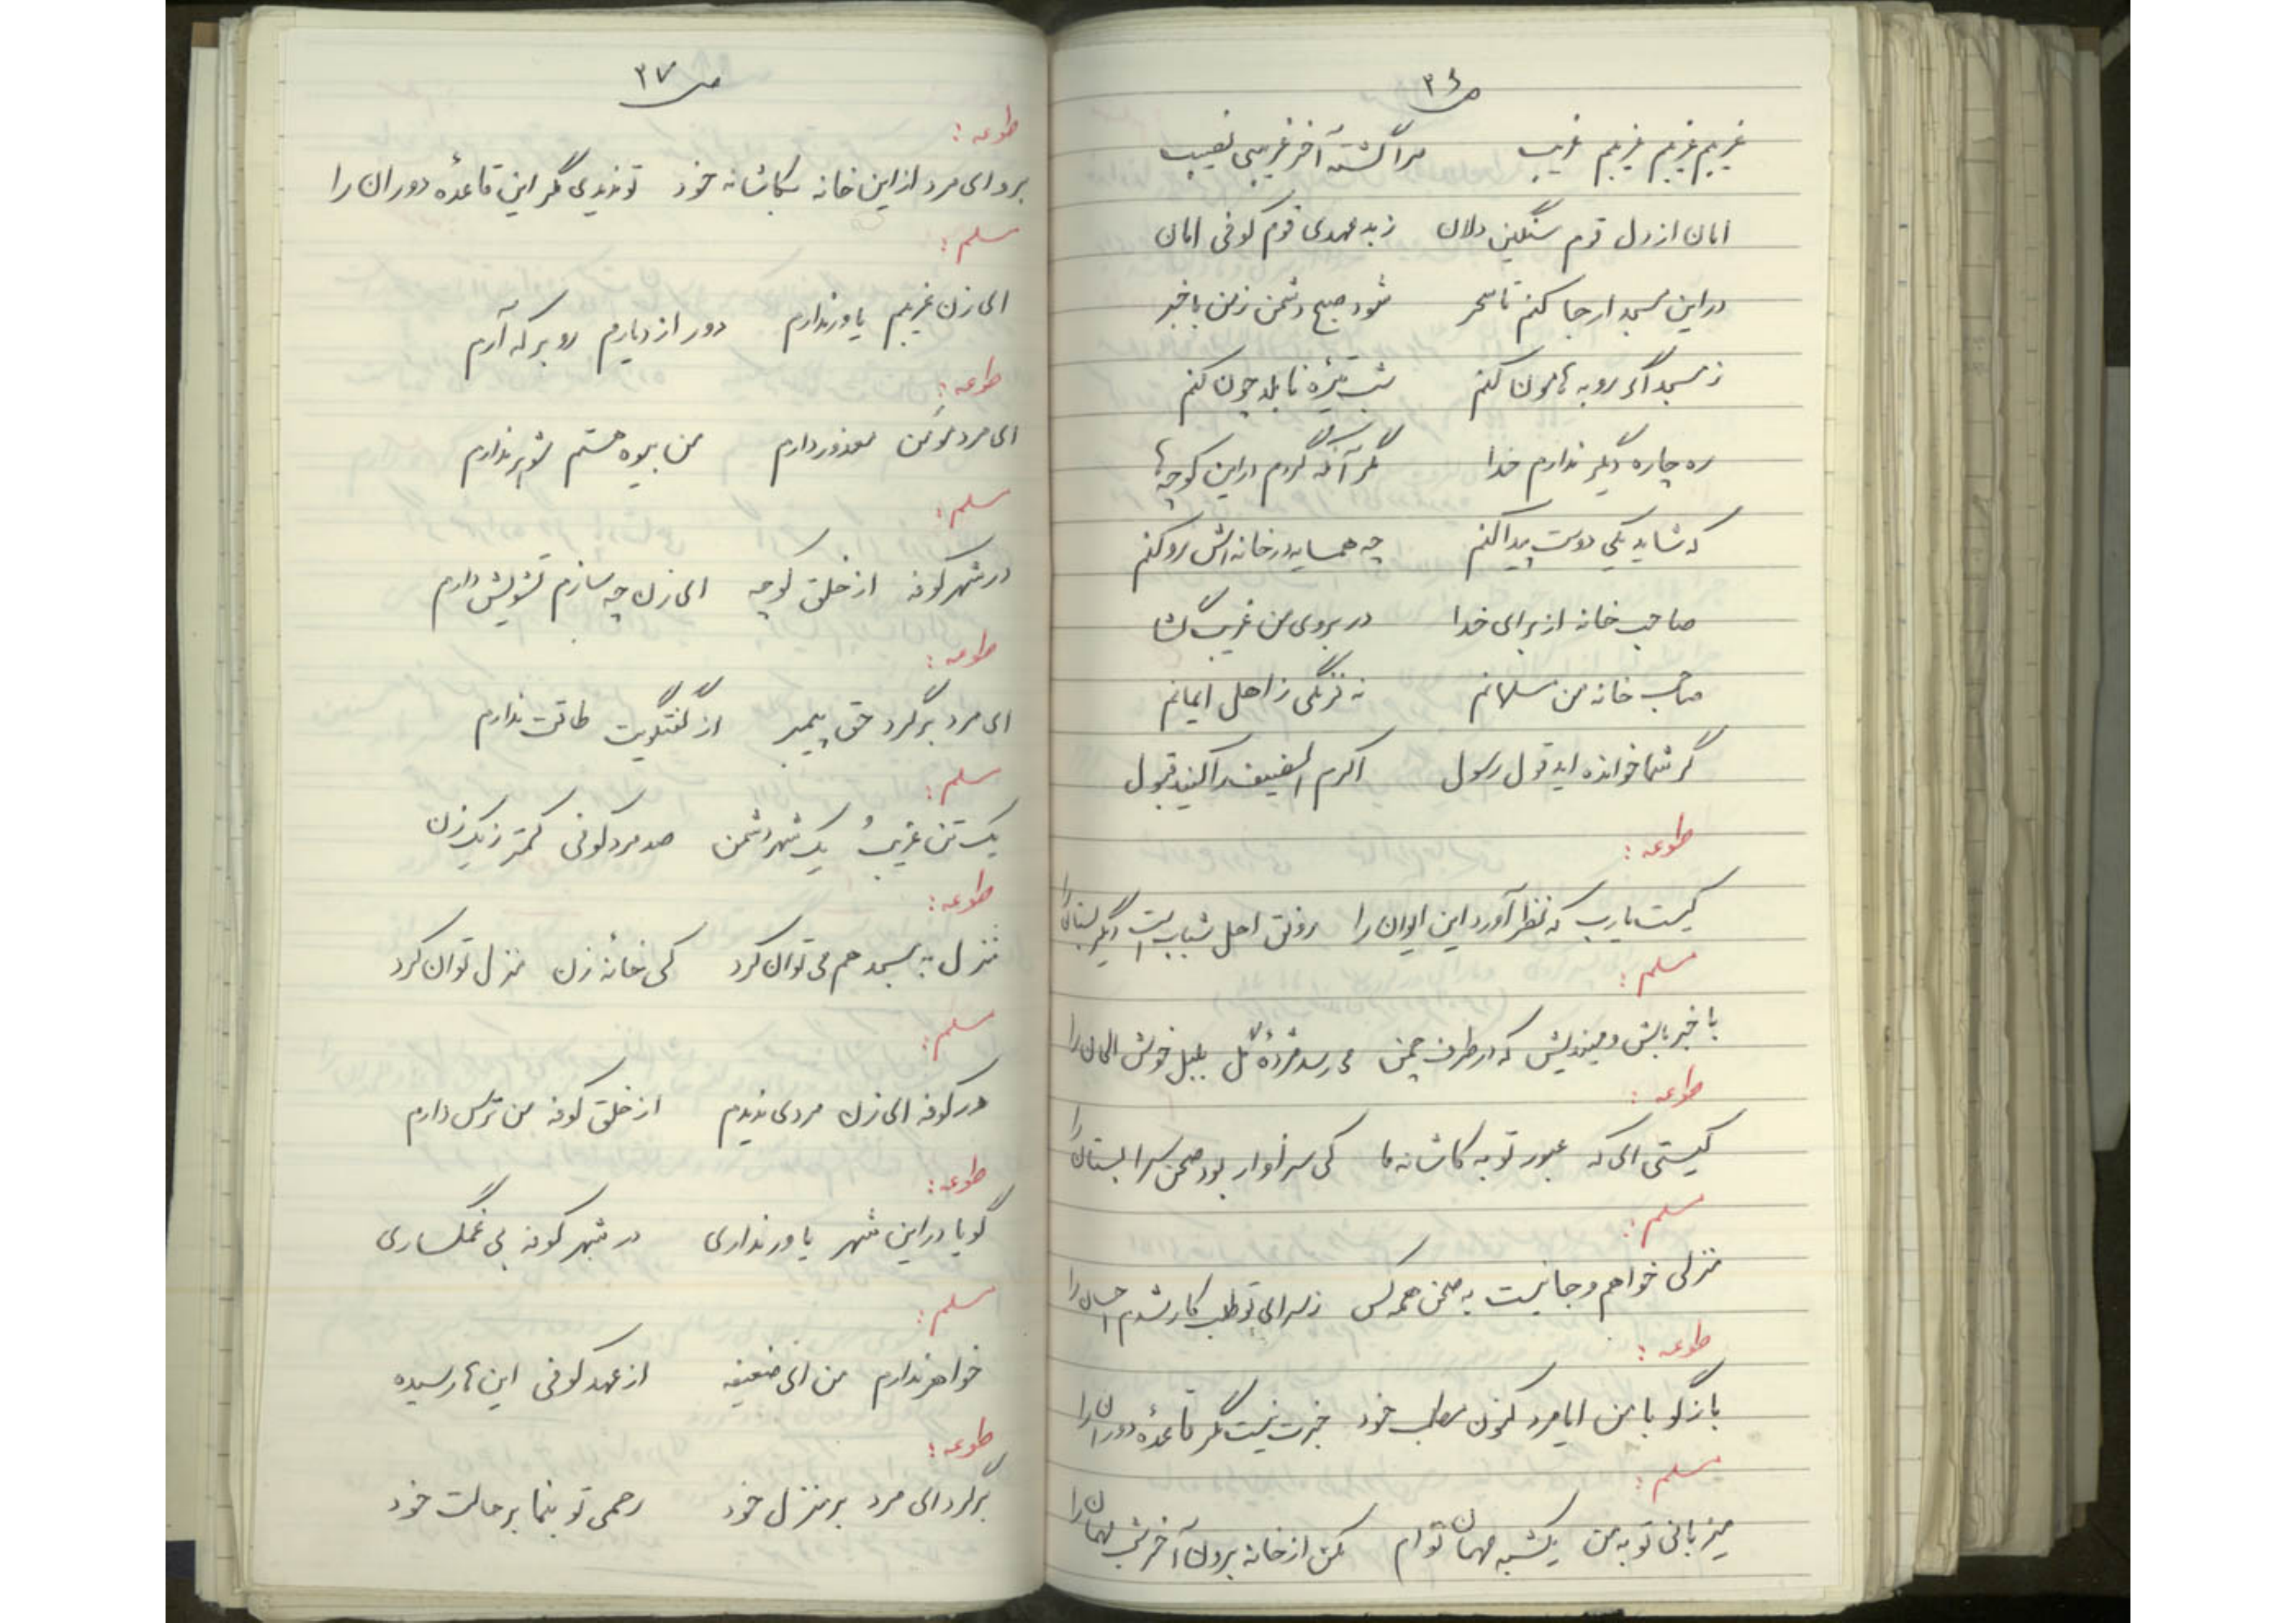 ص ۳۶
غریبم غریبم غریبم غریب مرا گشته آخر غریبی نصیب
امان از دل قوم سنگین دلان ز بد عهدی قوم کوفی امان
در این مسجد ار جا کنم تا سحر شود صبح دشمن ز من باخبر
ز مسجد اگر رو به هامون کنم شب تیره نابلد چون کنم
ره چاره دیگر ندارم خدا مگر آنکه گردم در این کوچه‌ها
که شاید یکی دوست پیدا کنم چه همسایه در خانه‌اش رو کنم
صاحب خانه از برای خدا در بروی من غریب گشا
صاحب خانه من مسلمانم نه فرنگی ز اهل ایمانم
گر شما خوانده اید قول رسول اکرم الضیف را کنید قبول
طوعه :
کیست یارب که نظر آورد این ایوان را رونق اهل شباب است دگر بستان را
مسلم :
با خبر باش و میندیش که در طرف چمن می رسد مژدهٔ گل بلبل خوش الحان را
طوعه :
کیستی ای که عبور تو به کاشانه ما کی سزاوار بود صحن سرابستان را
مسلم :
منزلی خواهم و جا نیست به صحن همه کس ز سرای تو طلب کار شدم احسان را
طوعه :
بازگو با من ایا مرد کنون مطلب خود خبرت نیست مگر قاعدهٔ دوران را
مسلم :
میزبانی تو به من یکشبه مهمان توام مکن از خانه برون آخر شب مهمان را
ص ۳۷
طوعه :
برو ای مرد از این خانه بکاشانه خود تو ندیدی مگر این قاعدهٔ دوران را
مسلم :
ای زن غریبم یاور ندارم دور از دیارم رو بر که آرم
طوعه :
ای مرد مؤمن معذور دارم من بیوه هستم شوهر ندارم
مسلم :
در شهر کوفه از خلق کوچه ای زن چه سازم تشویش دارم
طوعه :
ای مرد برگرد حق پیمبر از گفتگویت طاقت ندارم
مسلم :
یک تن غریبُ یک شهر دشمن صد مرد کوفی کمتر ز یک زن
طوعه :
منزل به مسجد هم می توان کرد کی خانهٔ زن منزل توان کرد
مسلم :
در کوفه ای زن مردی ندیدم از خلق کوفه من ترس دارم
طوعه :
گویا در این شهر یاور نداری در شهر کوفه بی غمگساری
مسلم :
خواهر ندارم من ای ضعیفه از عهد کوفی اینها رسیده
طوعه :
برگرد ای مرد بر منزل خود رحمی تو بنما بر حالت خود